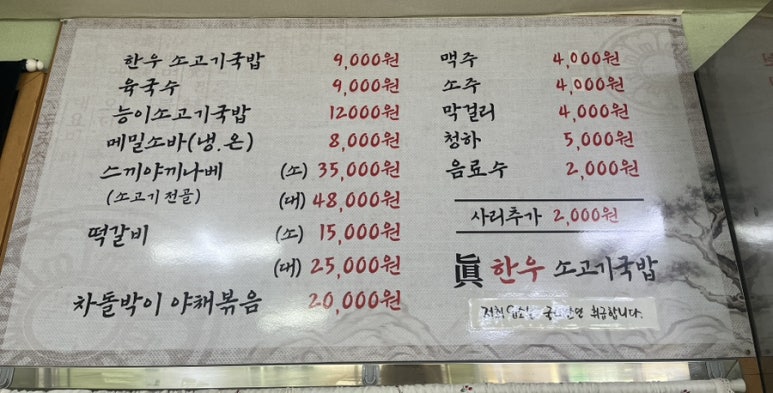 한우 소고기국밥 9,000원
육국수 9,000원
능이소고기국밥 12000원
메밀소바(냉.온) 8,000원
스끼야끼나베 (소) 35,000원
(소고기전골) (대) 48,000원
떡갈비 (소) 15,000원
(대) 25,000원
차돌박이 야채볶음 20,000원
맥주 4,000원
소주 4,000원
막걸리 4,000원
청하 5,000원
음료수 2,000원
사리추가 2,000원
眞 한우 소고기국밥
저희 업소는 국내산만 취급합니다.